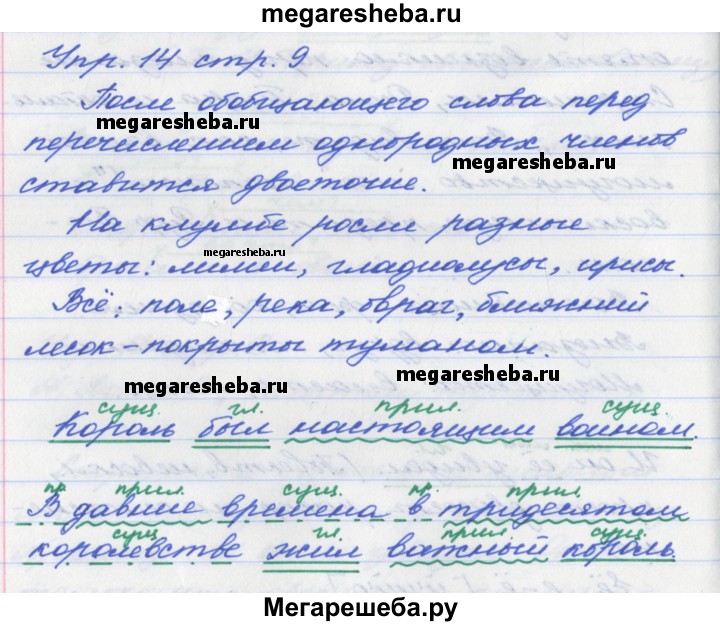 megaresheba.ru
Упр. 14 стр. 9
После обобщающего слова перед
megaresheba.ru
перечислением однородных членов
megaresheba.ru
ставится двоеточие.
На клумбе росли разные
megaresheba.ru
цветы: лилии, гладиолусы, ирисы.
Всё: поле, река, овраг, ближний
лесок – покрыты туманом.
megaresheba.ru
megaresheba.ru
сущ. гл. прил. сущ.
Король был настоящим воином.
пр. прил. сущ. пр. прил.
В давние времена в тридесятом
сущ. гл. прил. сущ.
королевстве жил важный король.
Мегарешеба.ру